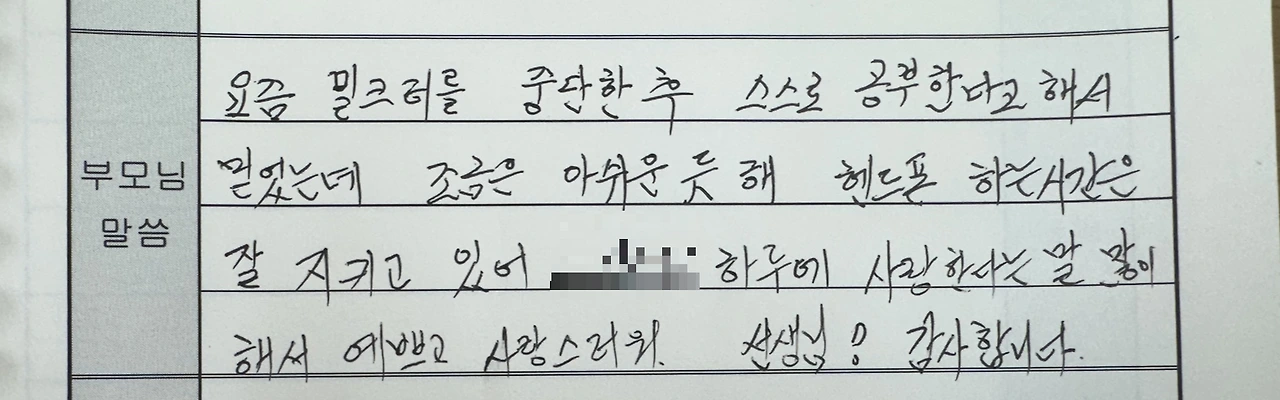 요즘 밀크러를 중단한 후 스스로 공부한다고 해서
부모님 말씀
믿었는데 조금은 아쉬운 듯 해 헨드폰 하는시간은
잘 지키고 있어 하루에 사랑한다는 말 많이
해서 예쁘고 사랑스러워. 선생님! 감사합니다.